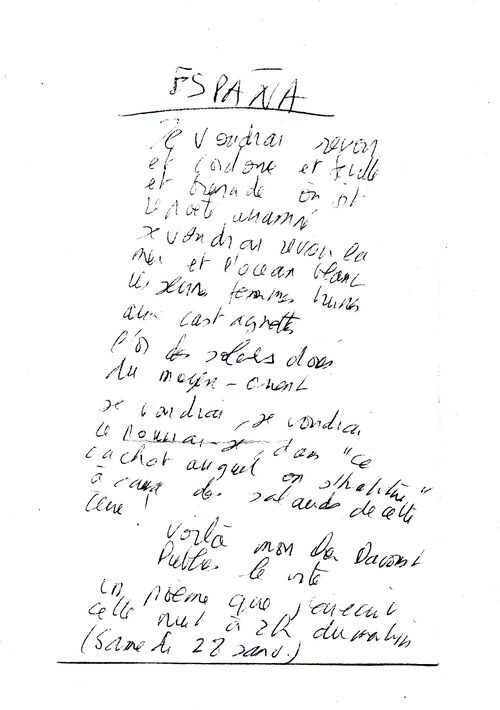 ESPAÑA
Je voudrai revoir
et Cordoue et Séville
et Grenade où vit
le poète
je voudrai revoir la
mer et l'océan blanc
les jeunes femmes brunes
aux castagnettes
l'or des soleils dorés
du moyen-orient
je voudrai, je voudrai
le pourrai-je, dans "ce
cachot auquel on
à cause des salauds de cette
Terre !
Voilà mon
Publies le vite
un poème que j'écrivis
cette nuit à 2h du matin
(Samedi 28 janv.)